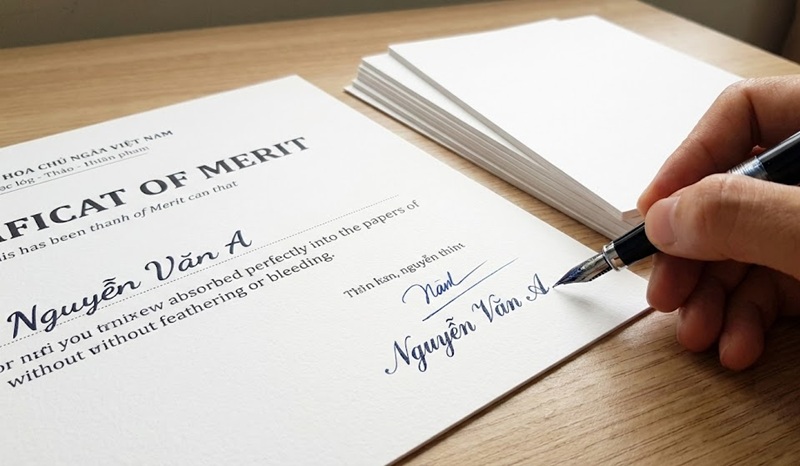 HOA CHỦ NGÃA VIỆT NAM
lóg - Thảo - Huân phạm
AFICAT OF MERIT
his has been thanh of Merit can that
Nguyễn Văn A
or nifi you trnixew absorbed perfectly into the papers of
without without feathering or bleeding.
Thin kan, nguyễn thint
Nguyễn Văn A